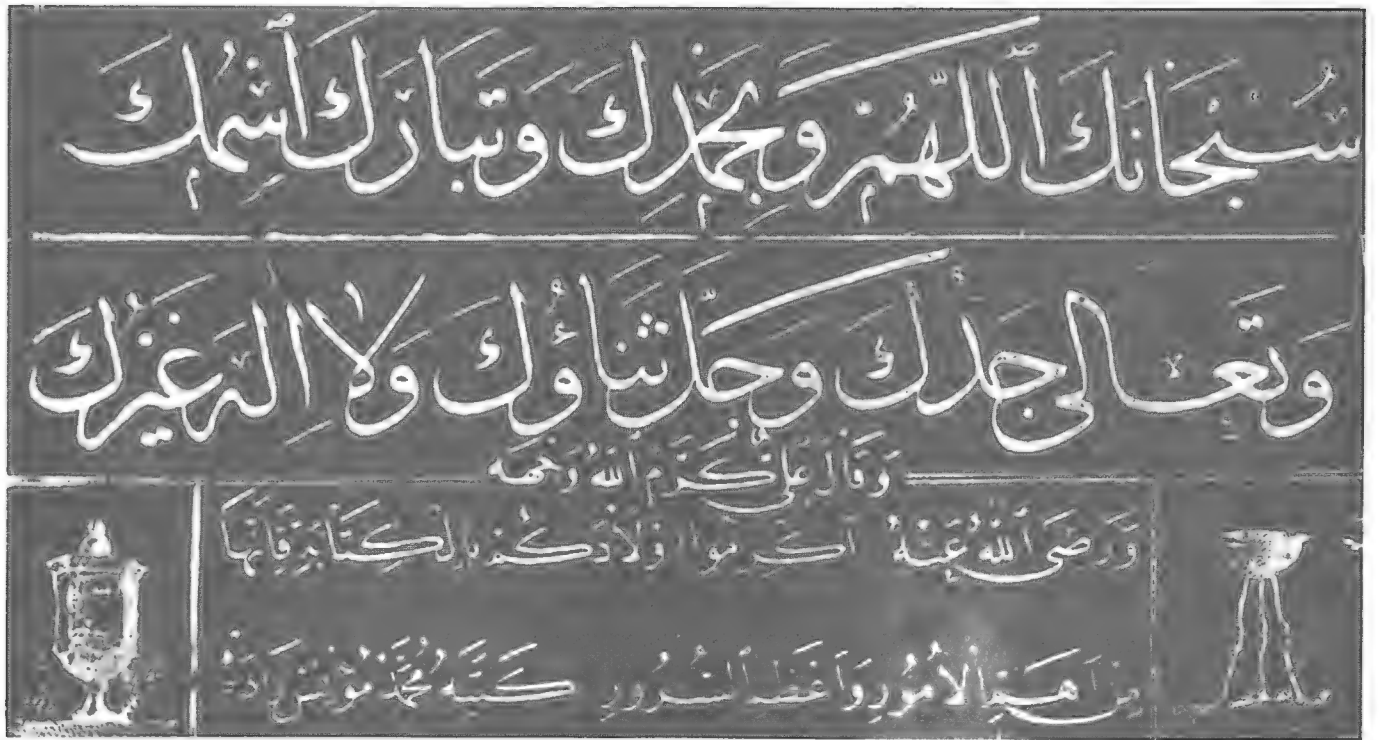 سُبْحَانَكَ ٱللّٰهُمَّ وَبِحَمْدِكَ وَتَبَارَكَ ٱسْمُكَ
وَتَعَالىٰ جَدُّكَ وَجَلَّ ثَنَاؤُكَ وَلَا اِلٰهَ غَيْرُكَ
وَقَالَ عَلِيٌّ كَرَّمَ ٱللّٰهُ وَجْهَهُ
وَرَضِيَ ٱللّٰهُ عَنْهُ اَكْرِمُوا اَوْلَادَكُمْ بِالْكِتَابَةِ فَاِنَّهَا
مِنْ اَهَمِّ ٱلْاُمُورِ وَاَعْظَمِ ٱلسُّرُورِ كَتَبَهُ مُحَمَّد مُؤْنِس زَادَه